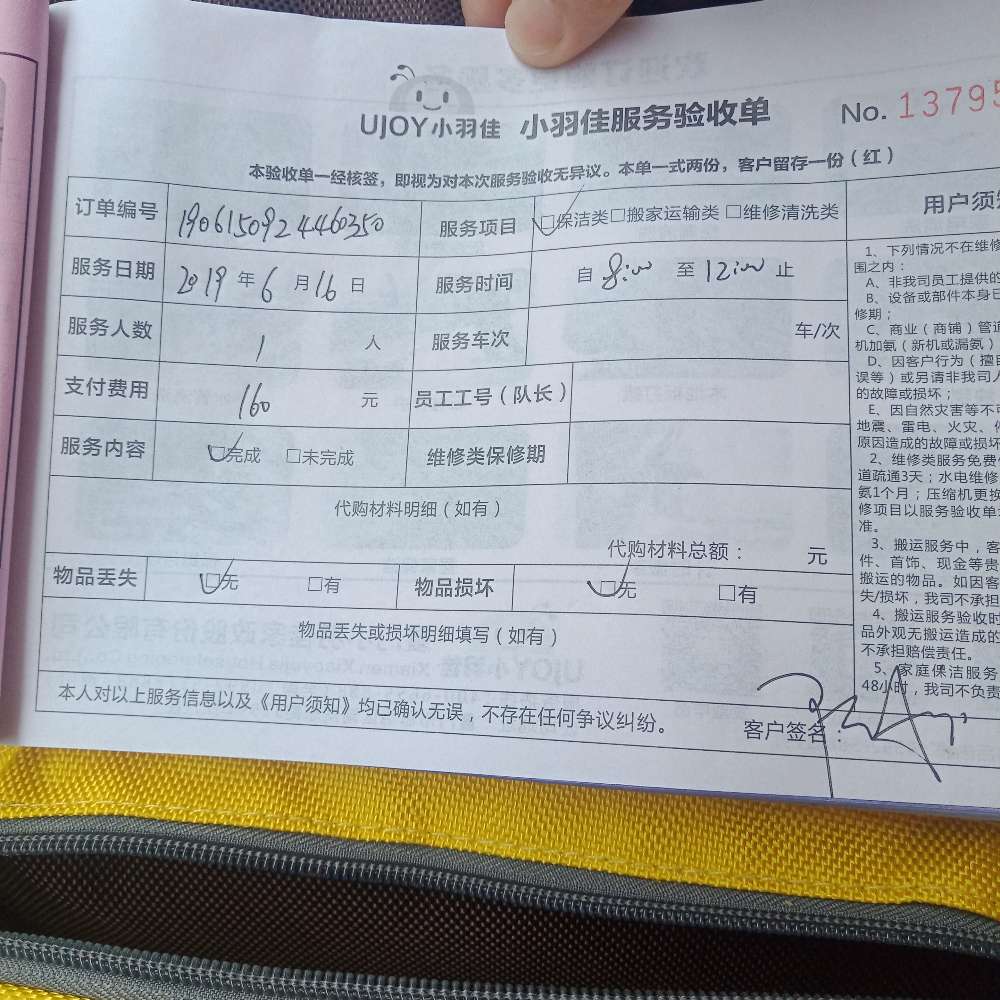 UJOY小羽佳 小羽佳服务验收单 No. 13795
本验收单一经核签，即视为对本次服务验收无异议。本单一式两份，客户留存一份（红）
订单编号 1906150924460350 服务项目 □保洁类□搬家运输类 □维修清洗类
服务日期 2019 年 6 月 16 日 服务时间 自 8:00 至 12:00 止
服务人数 1 人 服务车次 车/次
支付费用 160 元 员工工号（队长）
服务内容 □完成 □未完成 维修类保修期
代购材料明细（如有）
代购材料总额： 元
物品丢失 □无 □有 物品损坏 □无 □有
物品丢失或损坏明细填写（如有）
本人对以上服务信息以及《用户须知》均已确认无误，不存在任何争议纠纷。 客户签名：
用户须知
1、下列情况不在维修
围之内：
A、非我司员工提供的
B、设备或部件本身已
修期；
C、商业（商铺）管道
机加氨（新机或漏氨）
D、因客户行为（擅自
误等）或另请非我司人
的故障或损坏；
E、因自然灾害等不可
地震、雷电、火灾、
原因造成的故障或损坏
2、维修类服务免费
道疏通3天；水电维修
氨1个月；压缩机更换
修项目以服务验收单
准。
3、搬运服务中，客
件、首饰、现金等贵
搬运的物品。如因客
失/损坏，我司不承担
4、搬运服务验收时
品外观无搬运造成的
不承担赔偿责任。
5、家庭保洁服务
48小时，我司不负责